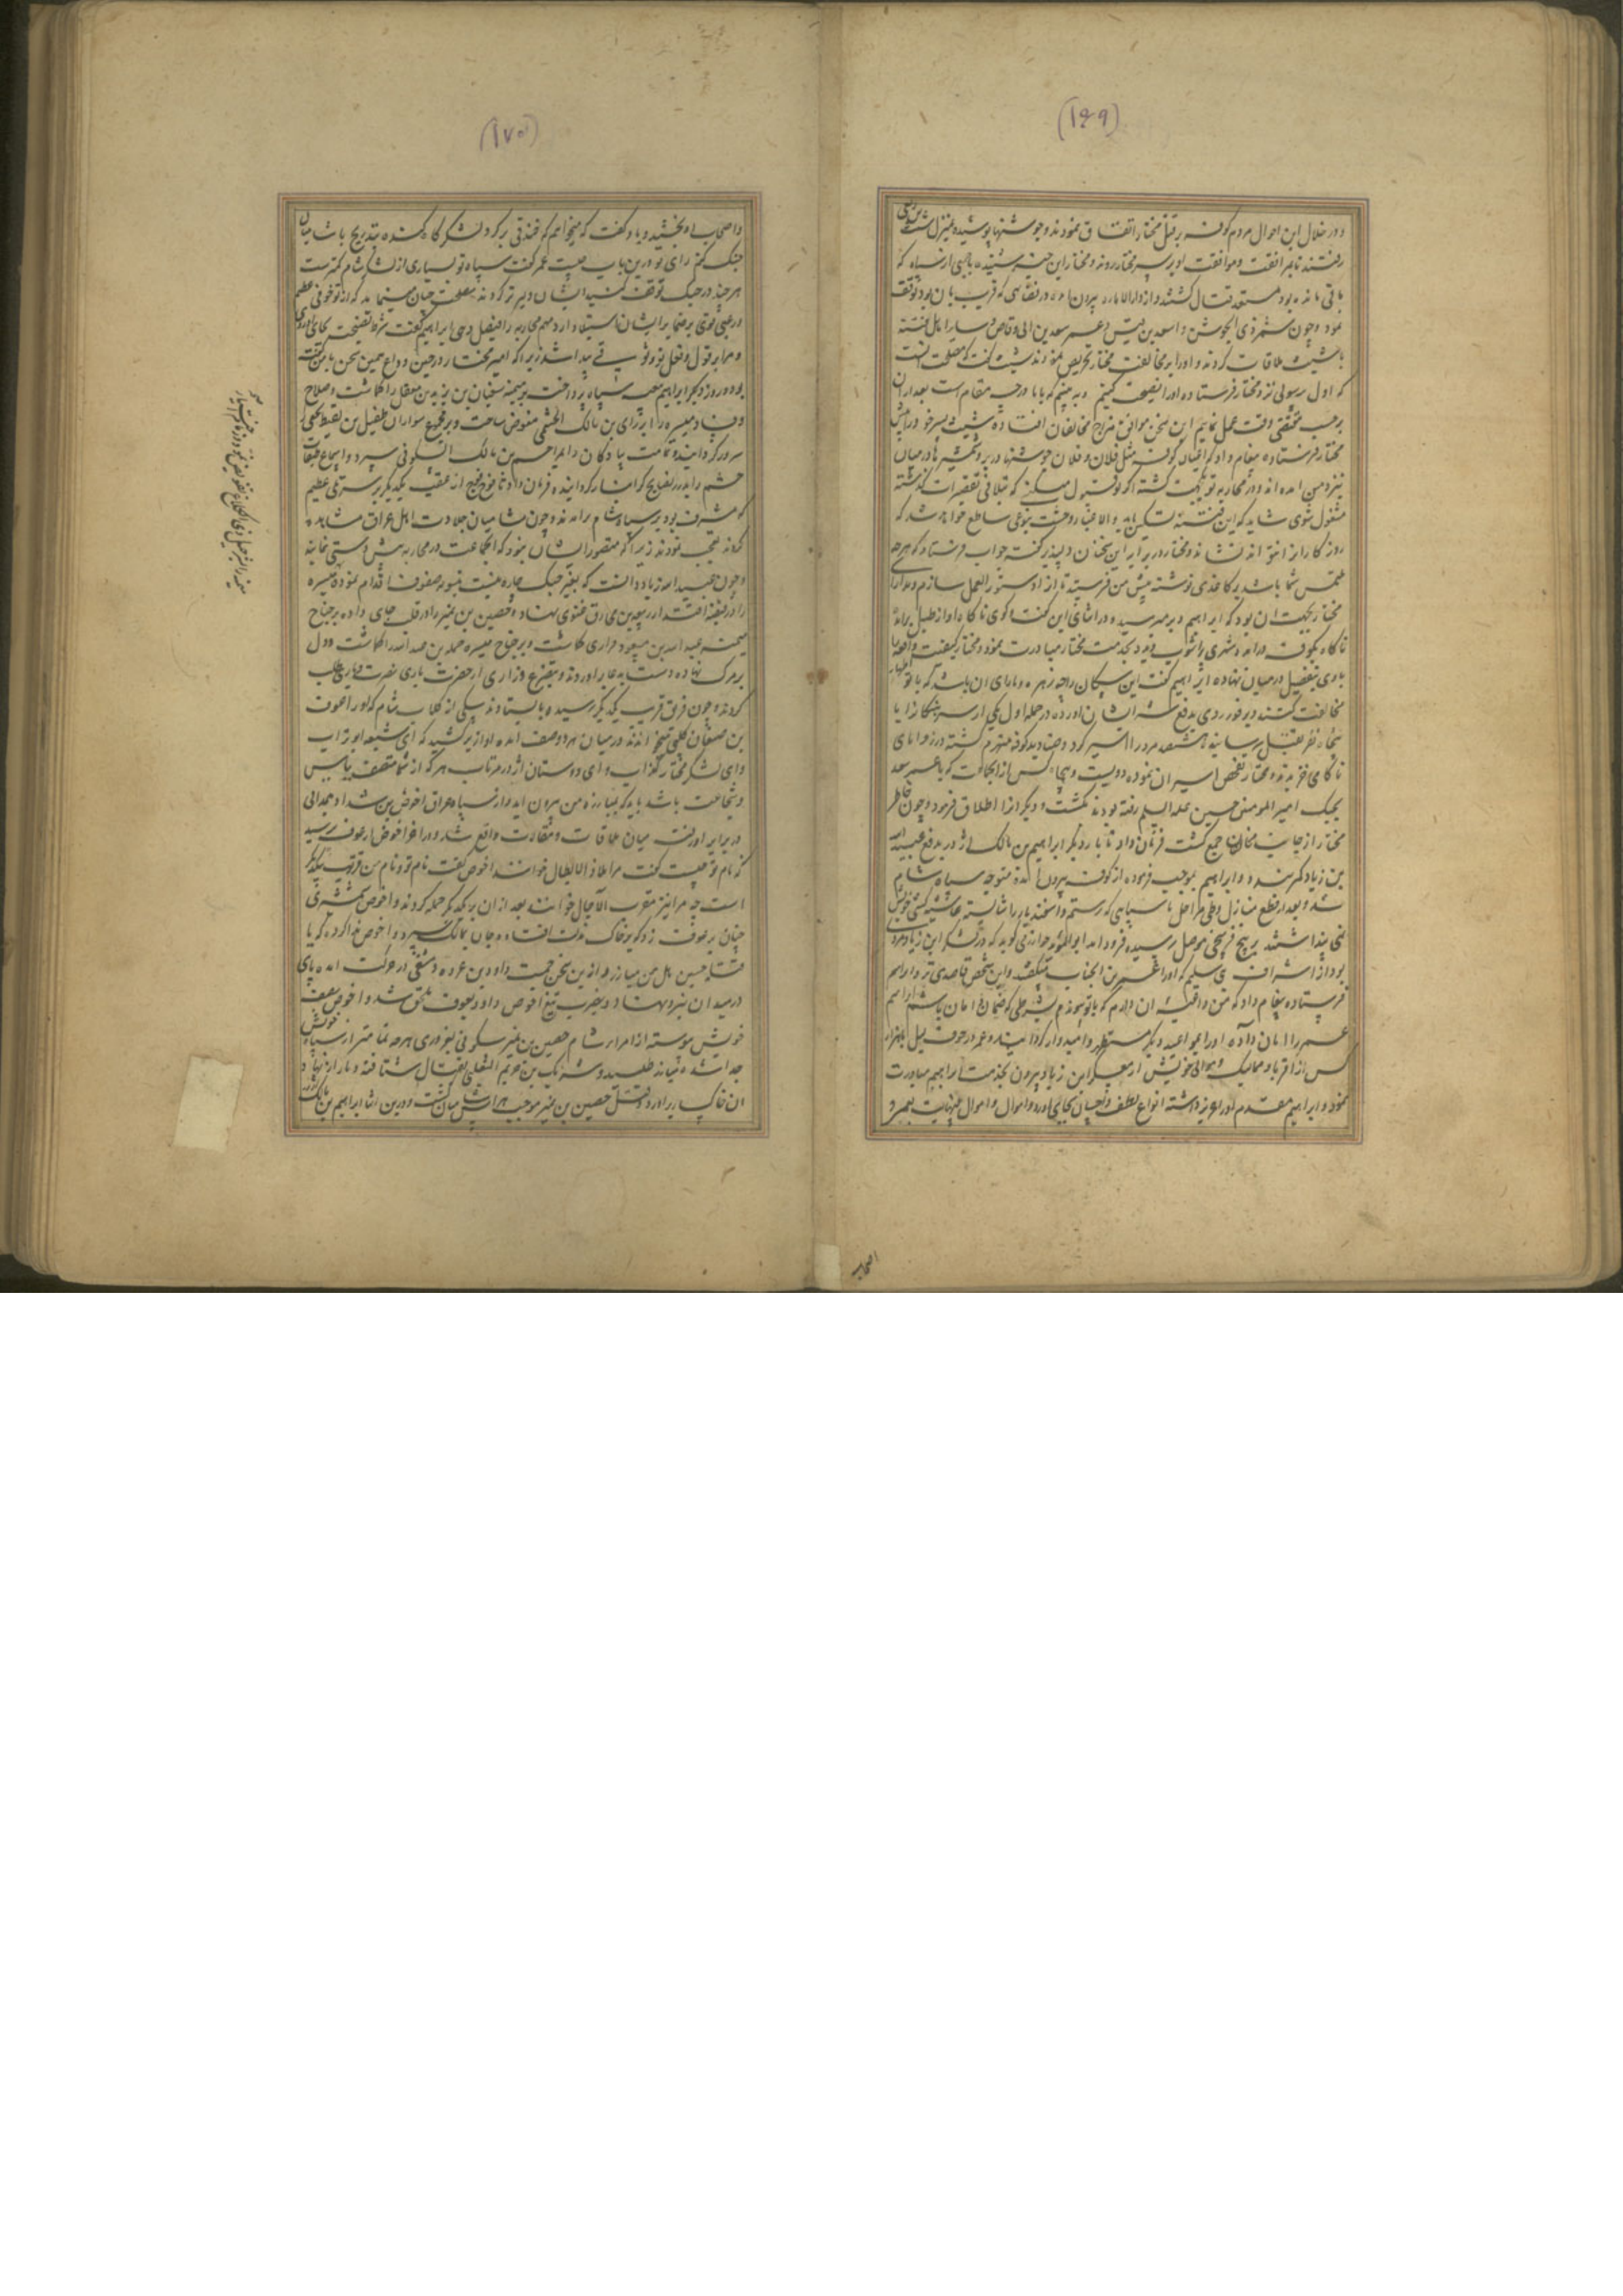 (۱۶۹)
در خلال این احوال مردم کوفه بر قتل مختار اتفاق نمودند و جوشنها پوشیده بمنزل شیث بن ربعی
رفتند تا بمرافقت و موافقت او بر سر مختار روند و مختار این خبر شنیده با جمعی از سپاه که
باقی مانده بود مستعد قتال گشتند و از دارالاماره بیرون آمده در فضایی که قریب بان بود توقف
نمود و چون شمر ذی الجوشن و اسعد بن قیس و عمر سعد بن ابی وقاص و سایر اهل فتنه
با شیث ملاقات کردند و او را بر مخالفت مختار تحریص نمودند شیث گفت که مصلحت انست
که اول رسولی نزد مختار فرستاده او را نصیحت کنیم و به بینیم که با ما در چه مقام است بعد از ان
بر حسب مقتضی وقت عمل نماییم این سخن موافق مزاج مخالفان افتاده شیث پسر خود را پیش
مختار فرستاده پیغام داد که اعیان کوفه مثل فلان و فلان جوشنها در بر و شمشیرها در میان
بنزد من آمده اند و در محاربه تو یکجهت گشته اگر تو قبول میکنی که بتلافی تقصیرات گذشته
مشغول شوی شاید که این فتنه تسکین یابد والا غبار وحشت بنوعی ساطع خواهد شد که
روزگار انرا نتواند نشاند و مختار در برابر این سخنان دلپذیر گفته جواب فرستاد که هرچه
ملتمس شما باشد بر کاغذی نوشته پیش من فرستید تا انرا دستور العمل سازم و مدارای
مختار بجهت ان بود که ابراهیم دیر میرسید و در اثنای این گفت و گوی ناگاه آواز طبل برآمد
ناگاه بکوفه درامد و شهری پر آشوب دید بخدمت مختار مبادرت نمود و مختار کیفیت واقعه را
با وی بتفصیل در میان نهاده ابراهیم گفت این سکان را چه زهره و یارای ان باشد که با تو اظهار
مخالفت کنند و بر فور روی بدفع شر ایشان آورده در حمله اول یکی از سرهنگان را با
پنجاه نفر بقتل رسانید و هشتصد مرد را اسیر کرد و صنادید کوفه منهزم گشته در زوایای
ناکامی خزیدند و مختار تفحص اسیران نموده دویست و پنجاه کس از انجماعت که با عمر سعد
بجنک امیر المومنین حسین علیه السلم رفته بودند بکشت و دیگرانرا اطلاق فرمود و چون خاطر
مختار از جانب مخالفان جمع گشت فرمان داد تا بار دیگر ابراهیم بن مالک اژدر بدفع عبیدالله
بن زیاد کمر بندد و ابراهیم بموجب فرموده از کوفه بیرون آمده متوجه سپاه شام
شد و بعد از قطع منازل و طی مراحل با سپاهی که رستم و اسفندیار را شایسته غاشیه کشی خویش
نمی پنداشتند بر پنج فرسخی موصل رسیده فرود آمد ابوالموید خوارزمی گوید که در لشکر ابن زیاد مردی
بود از اشراف بنی سلیم که او را عمیر بن الحباب میگفتند و این شخص قاصدی نزد ابراهیم
فرستاده پیغام داد که من داعیه ان دارم که با تو پیوندم بشرطی که ضمان امان باشم ابراهیم
عمیر را امان داده او را بمواعید دیگر مستظهر و امیدوار گردانید و عمیر در جوف لیل با هزار
کس از اقربا و ممالیک و موالی خویش از معسکر ابن زیاد بیرون بخدمت ابراهیم مبادرت
نمود و ابراهیم مقدم او را عزیز داشته انواع لطف و احسان بجای آورد و اموال بینهایت بعمیر و
اصحاب
(۱۷۰)
واصحاب او بخشید و با او گفت که میخواهم که خندقی بر گرد لشکرگاه کنده بتدریج با شامیان
جنک کنم رای تو درین باب چیست عمیر گفت سپاه تو بسیاری از لشکر شام کمترست
هر چند در جنک توقف کنید ایشان دلیرتر گردند مصلحت چنان مینماید که از تو خوفی عظیم
و رعبی قوی بر ضمایر ایشان استیلا دارد مهم محاربه را فیصل دهی ابراهیم گفت شرط نصیحت بجای آوردی
و مرا بر قول و فعل تو وثوق پیدا شد زیرا که امیر مختار در حین وداع همین سخن با من گفته
بود و روز دیگر ابراهیم بتعبیه سپاه پرداخت بر میمنه سفیان بن یزید بن معقل را گماشت و صلاح
و فساد میسره را برای بن مالک الخثعمی مفوض ساخت و بر مجموع سواران طفیل بن لقیط نخعی را
سرور گردانید و تمامت پیادگان را بمزاحم بن مالک السکونی سپرد و اجماع طبقات
حشم را بدر نصایح گرانبار گردانیده فرمان داد تا فوج فوج از عقب یکدیگر بر سر تلی عظیم
که مشرف بود بر سپاه شام راندند و چون شامیان جلادت اهل عراق مشاهده
کردند تعجب نمودند زیرا که متصور ایشان نبود که انجماعت در محاربه پیش دستی نمایند
و چون عبیدالله زیاد دانست که بغیر جنک چاره نیست بتسویه صفوف اقدام نموده میسره
را در قبضه اقتدار ربیعه بن مخارق غنوی نهاد و حصین بن نمیر را در قلب جای داده بر جناح
میمنه عبدالله بن مسعود فزاری گماشت و بر جناح میسره جمله بن عبدالله را گماشت و دل
بر مرک نهاده دست بدعا برآوردند و بتضرع و زاری از حضرت باری نصرت و یاری طلب
کردند و چون فریقین قریب یکدیگر رسیده بایستادند یکی از کلاب شام که او را عوف
بن ضبعان کلبی میخواندند در میان هر دو صف آمده آواز برکشید که ای شیعه ابو تراب
و ای لشکر مختار کذاب و ای دوستان اژدر مرتاب هر که از شما متصف بباس
و شجاعت باشد باید که بمبارزه من بیرون آید و از سپاه عراق احوص بن شداد همدانی
در برابر او رفت میان ملاقات و مقالات واقع شد و در آخر احوص از عوف پرسید
که نام تو چیست گفت مرا ملاذ الابطال خوانند احوص گفت نام تو و نام من قریب بیکدیگر
است چه مرا نیز مقرب الآجال خوانند بعد از ان بر یکدیگر حمله کردند و احوص شمشیری
چنان بر عوف زد که بر خاک مذلت افتاده و جان بمالک سپرد و احوص ندا کرد که یا
قتله حسین هل من مبارز ازین سخن حمیت داود بن عروه دمشقی در حرکت آمده پای
در میدان نبرد نهاد و بضرب تیغ احوص داود بعوف ملحق شد و احوص بصف
خویش پیوسته از امراء شام حصین بن نمیر سکونی بغروری هرچه تمامتر از سپاه خویش
جدا شده مبارز طلبید و شریک بن خریم التغلبی بقتال شتافته دمار از نهاد
ان خاکسار برآورد و قتل حصین بن نمیر موجب هراس شامیان گشت و درین اثنا ابراهیم بن مالک اژدر